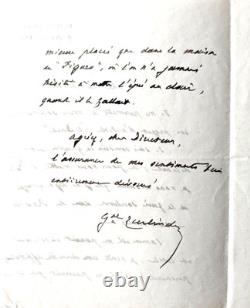 mieux placé que dans la maison
du "Figaro", où l'on n'a jamais
hésité à mettre l'épée au clair,
quand il le fallait.
agréez, cher Directeur,
l'assurance de mes sentiments
entièrement dévoués
Gal